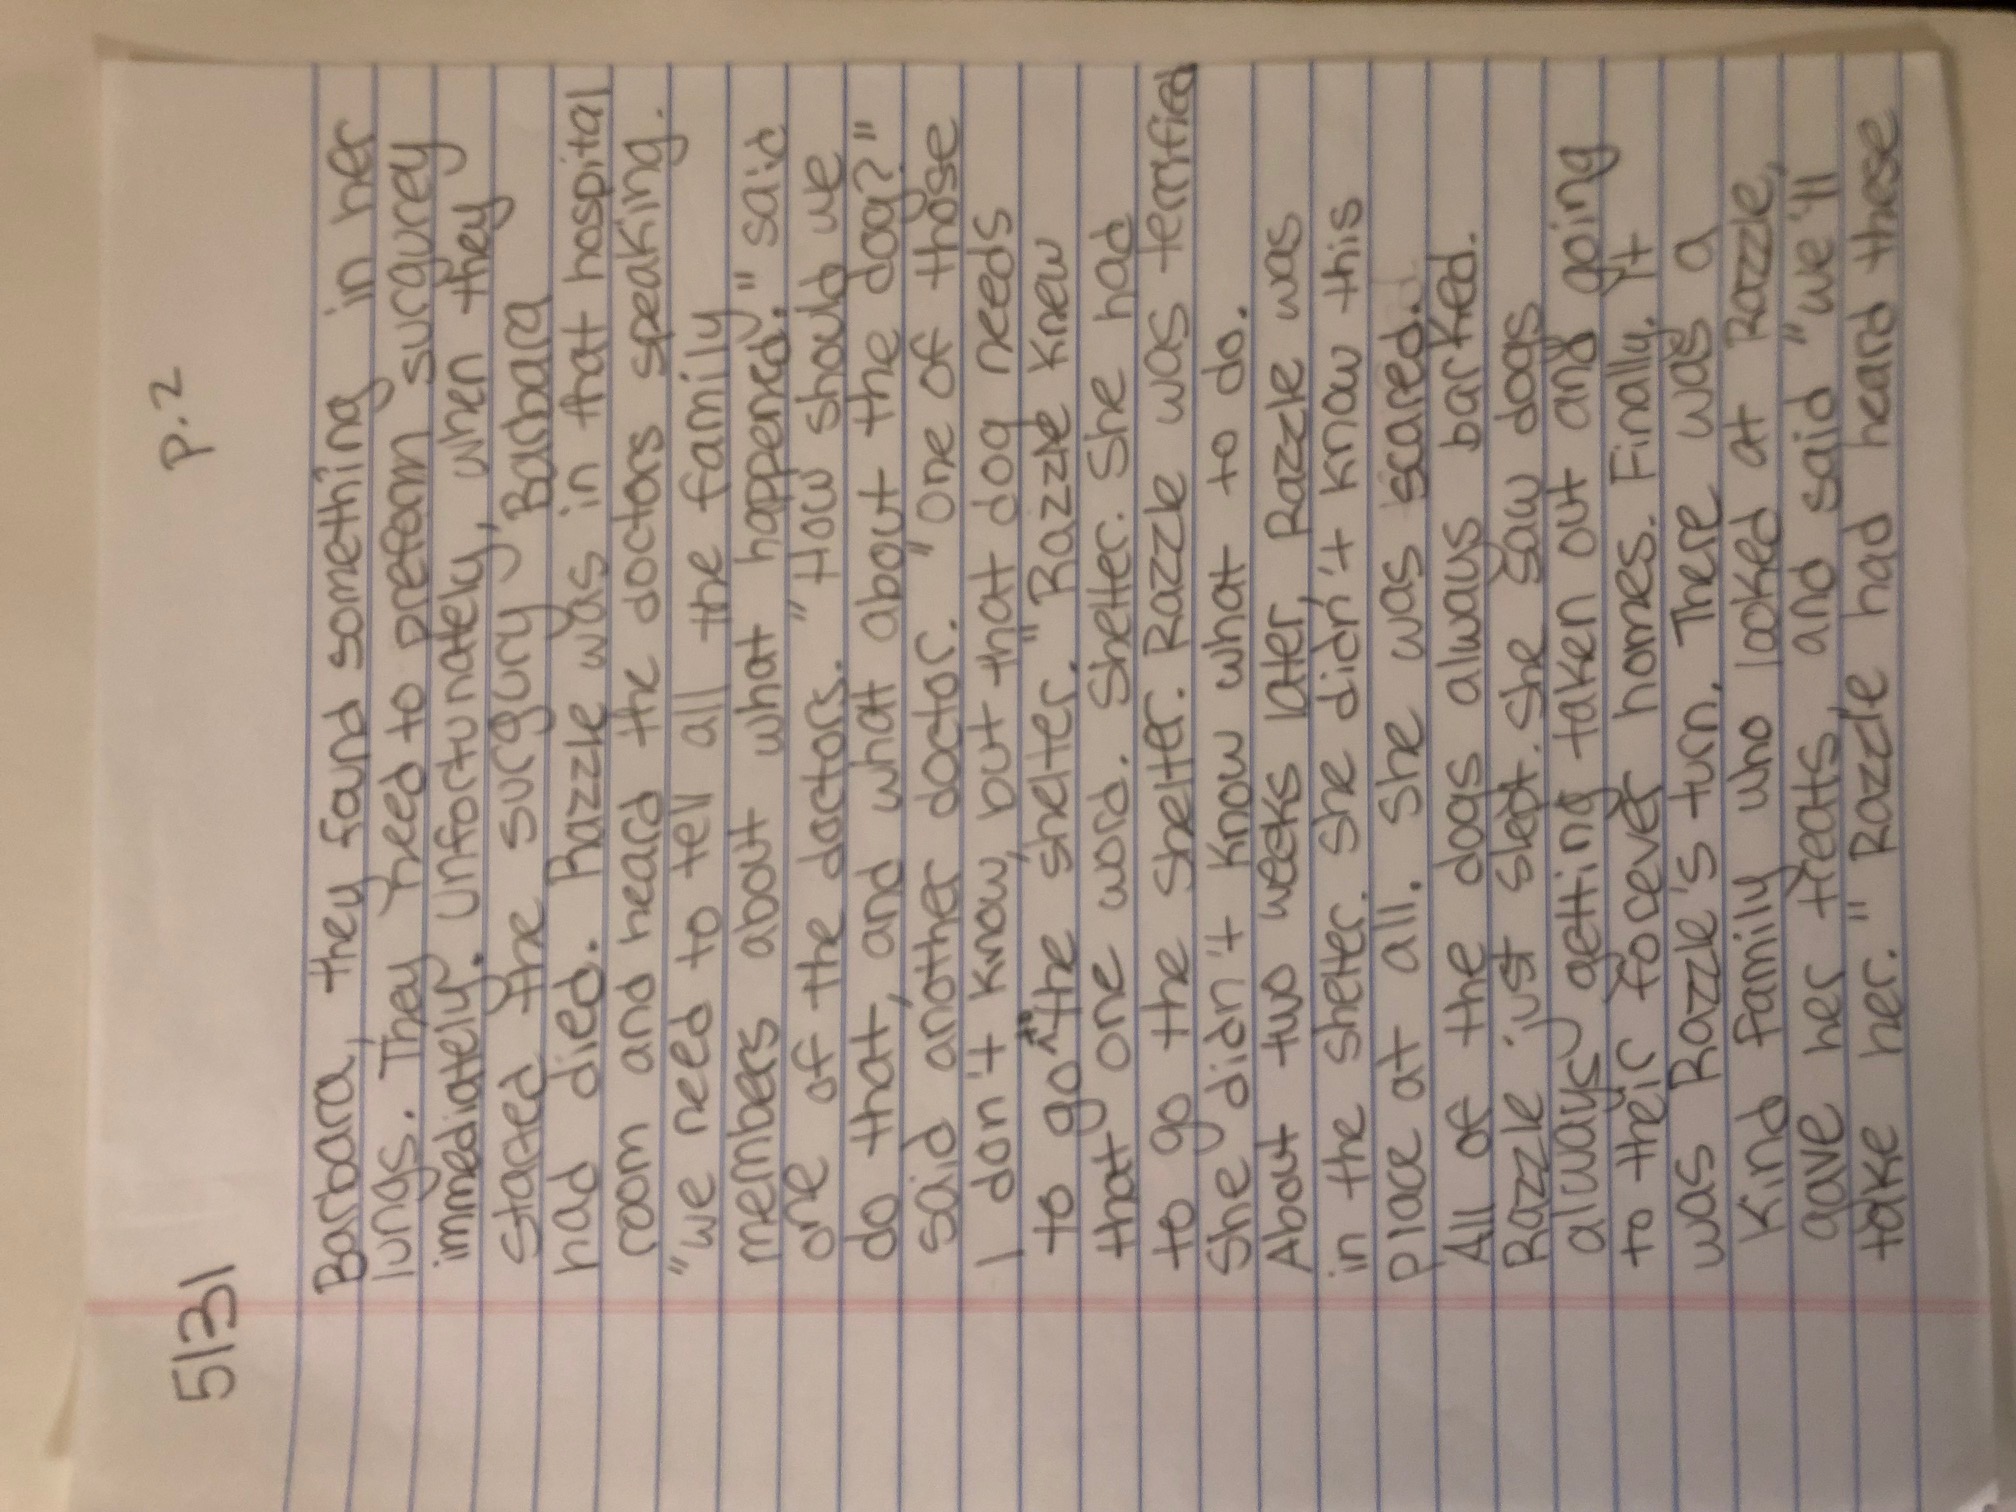 5131
p.2
Barbara, they found something in her
lungs. They need to preform surgurey
immediately. Unfortunately, when they
started the surgury Barbara
had died. Razzle was in that hospital
room and heard the doctors speaking.
"we need to tell all the family
members about what happened." said
one of the doctors. "How should we
do that, and what about the dog?"
said another doctor. "One of those
I don't know, but that dog needs
to go to the shelter." Razzle knew
that one word. Shelter. She had
to go the shelter. Razzle was terrified
She didn't know what to do.
About two weeks later, Razzle was
in the shelter. She didn't know this
place at all. She was scared.
All of the dogs always barked.
Razzle just slept. She saw dogs
always getting taken out and going
to their forever homes. Finally. It
was Razzle's turn. There was a
kind family who looked at Razzle,
gave her treats, and said "we'll
take her." Razzle had heard these